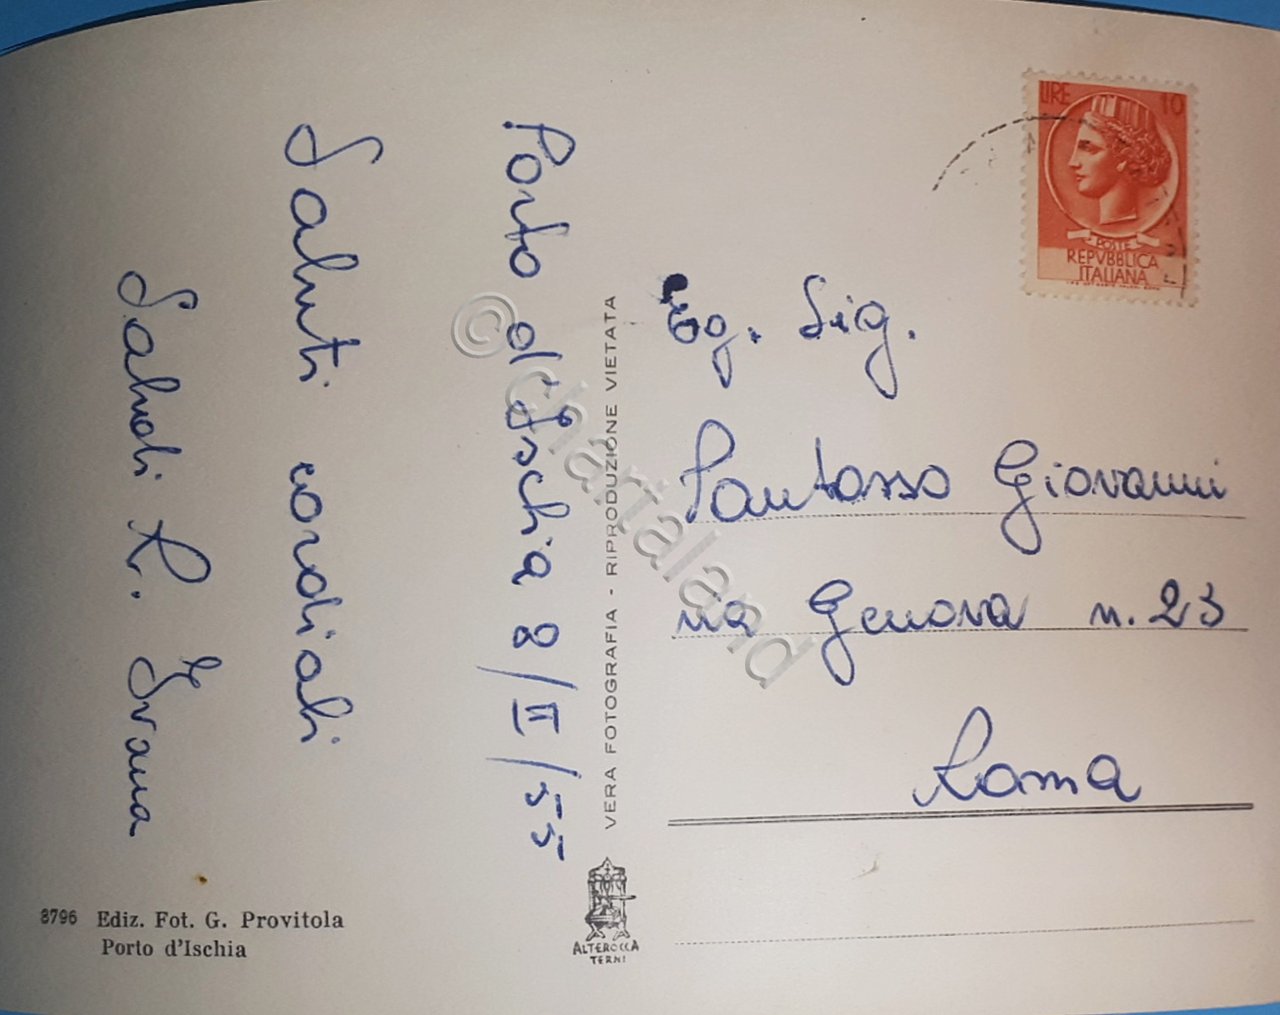 Porto d'Ischia 8/II/55
Saluti cordiali
Salvati R. Ivana
LIRE 10
POSTE
REPVBBLICA
ITALIANA
Eg. Sig.
Santosso Giovanni
via Genova n. 23
Roma
VERA FOTOGRAFIA - RIPRODUZIONE VIETATA
ALTEROCCA
TERNI
8796 Ediz. Fot. G. Provitola
Porto d'Ischia
© chartaland